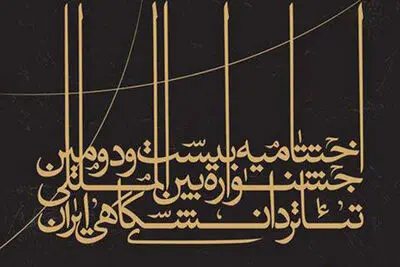 اختتامیه بیست و دومین
جشنواره بین المللی
تئاتر دانشگاهی ایران